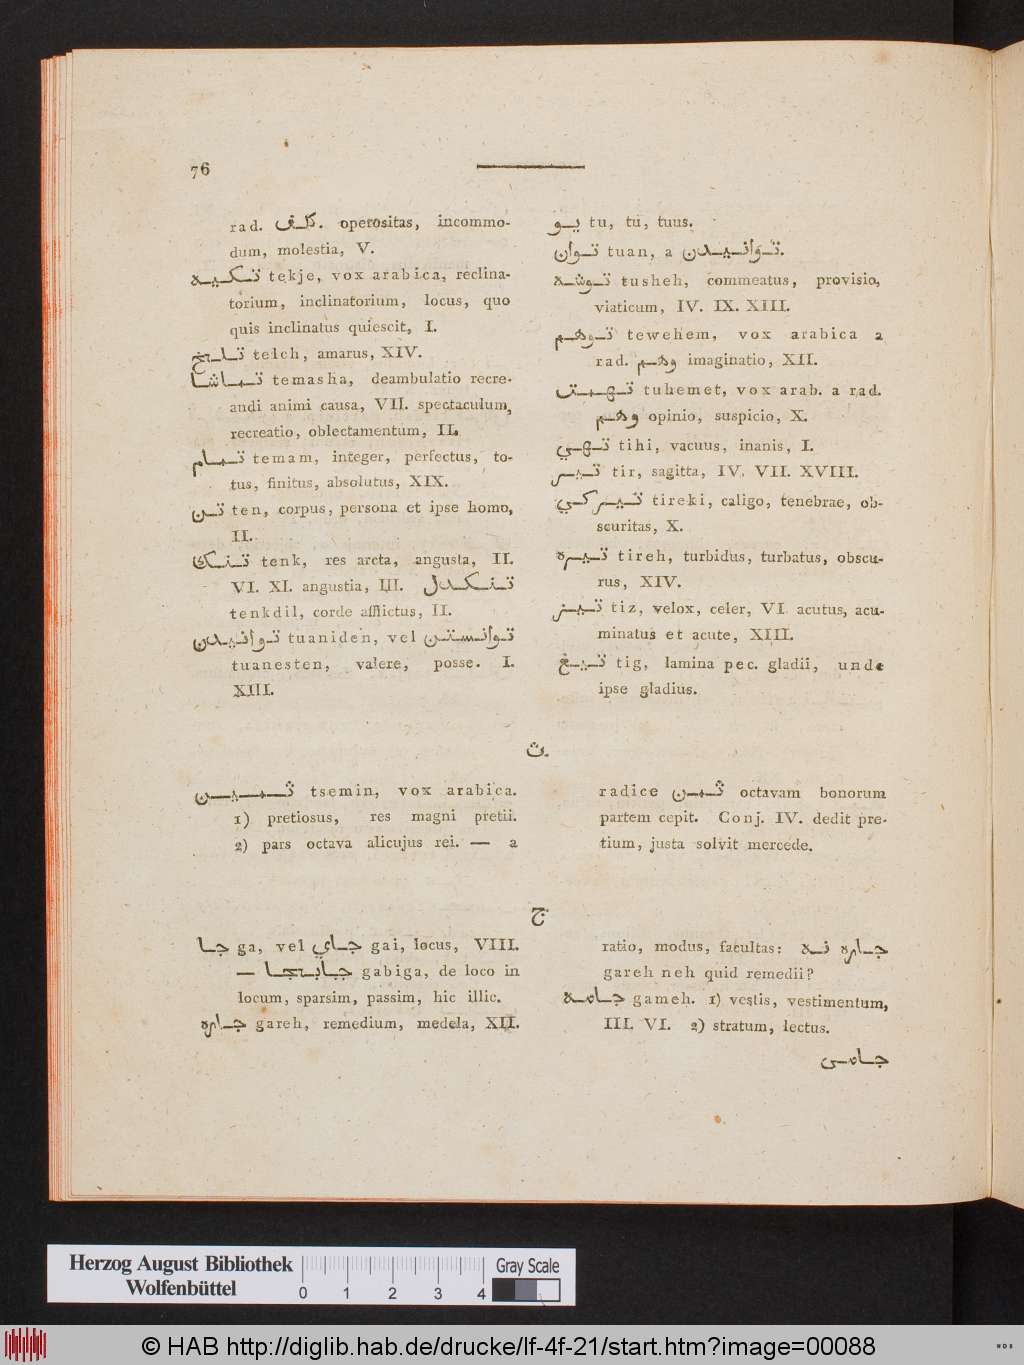 76
rad. كلف. operositas, incommo-
dum, molestia, V.
تكيه tekje, vox arabica, reclina-
torium, inclinatorium, locus, quo
quis inclinatus quiescit, I.
تلخ telch, amarus, XIV.
تماشا temasha, deambulatio recre-
andi animi causa, VII. spectaculum,
recreatio, oblectamentum, II.
تمام temam, integer, perfectus, to-
tus, finitus, absolutus, XIX.
تن ten, corpus, persona et ipse homo,
II.
تنك tenk, res arcta, angusta, II.
VI. XI. angustia, III. تنكدل
tenkdil, corde afflictus, II.
توانيدن tuaniden, vel توانستن
tuanesten, valere, posse. I.
XIII.
tu, tú, tuus.
توان tuan, a توانيدن.
توشه tusheh, commeatus, provisio,
viaticum, IV. IX. XIII.
توهم tewehem, vox arabica a
rad. وهم imaginatio, XII.
تهمت tuhemet, vox arab. a rad.
وهم opinio, suspicio, X.
تهي tihi, vacuus, inanis, I.
تير tir, sagitta, IV. VII. XVIII.
تيركي tireki, caligo, tenebrae, ob-
scuritas, X.
تيره tireh, turbidus, turbatus, obscu-
rus, XIV.
تيز tiz, velox, celer, VI. acutus, acu-
minatus et acute, XIII.
تيغ tig, lamina pec. gladii, unde
ipse gladius.
ث.
ثمين tsemin, vox arabica.
1) pretiosus, res magni pretii.
2) pars octava alicujus rei. — a
radice ثمن octavam bonorum
partem cepit. Conj. IV. dedit pre-
tium, justa solvit mercede.
ج
جا ga, vel جاي gai, locus, VIII.
— جابجا gabiga, de loco in
locum, sparsim, passim, hic illic.
جاره gareh, remedium, medela, XII.
ratio, modus, facultas: جاره نه
gareh neh quid remedii?
جامه gameh. 1) vestis, vestimentum,
III. VI. 2) stratum, lectus.
جامى
Herzog August Bibliothek
Wolfenbüttel
0 1 2 3 4
Gray Scale
© HAB http://diglib.hab.de/drucke/lf-4f-21/start.htm?image=00088